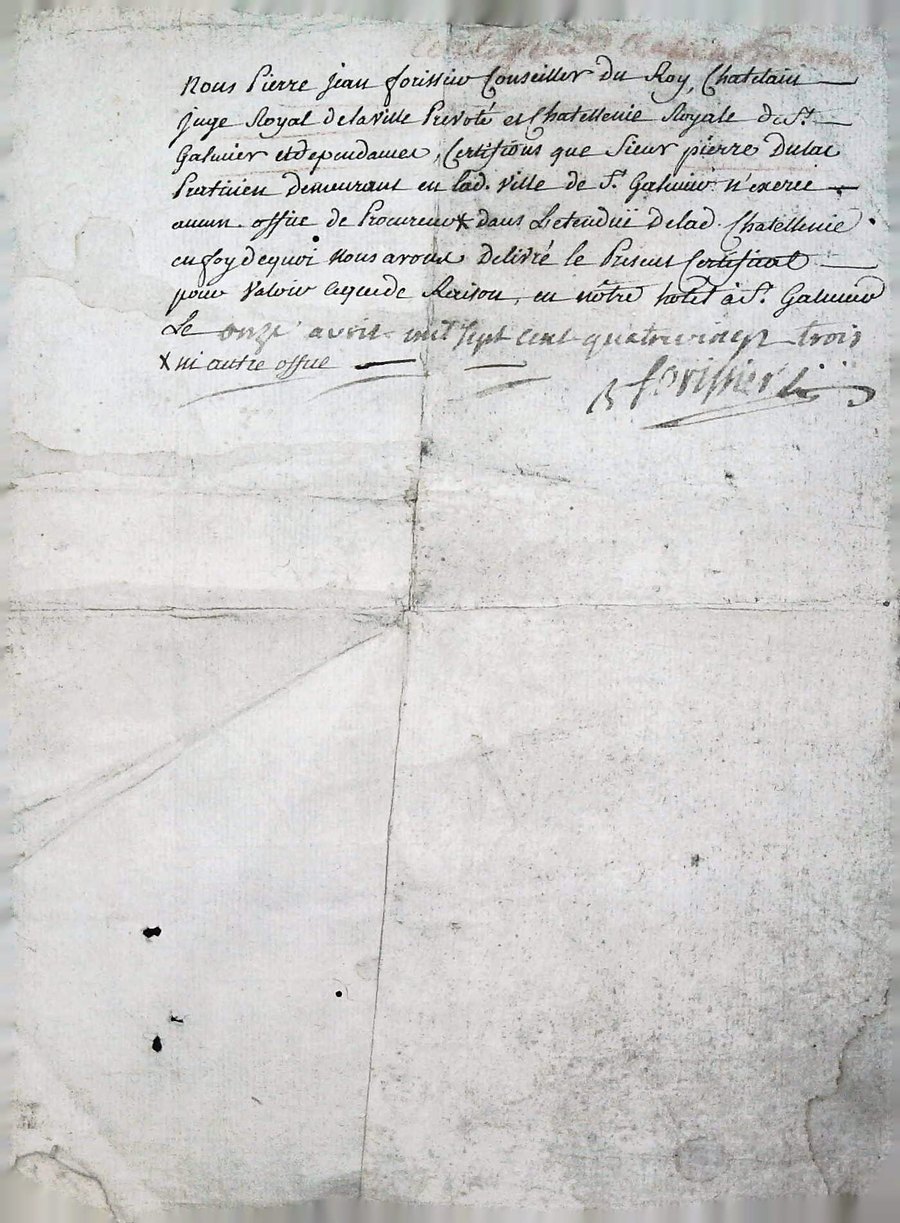 Nous Pierre Jean forissier Conseiller du Roy, Chatelain
juge Royal delaville Prevoté et Chatellenie Royale de St.
Galmier et dependances, Certifions que Sieur pierre Dulac
Praticien demeurant en lad. ville de St. Galmier n'exerce
aucun office de Procureur x dans Letenduë Delad. Chatellenie
en foy dequoi Nous avons delivré le Present Certificat
pour Valoir ceque de Raison, en nôtre hotel à St. Galmier
Le onze avril mil sept cent quatrevingt trois
x ni autre office
forissier